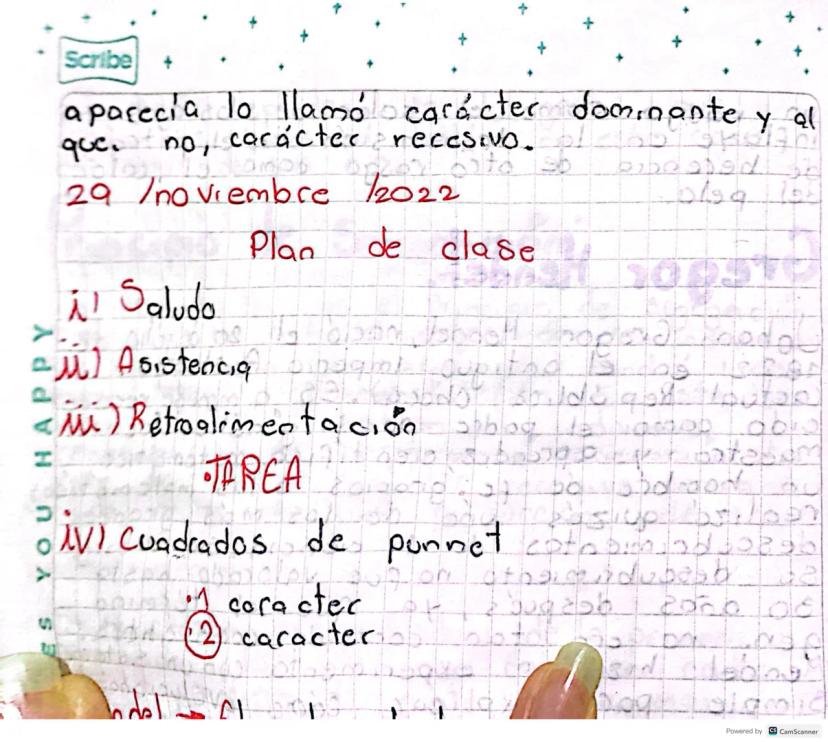 Scribe
aparecía lo llamó carácter dominante y al
que no, carácter recesivo.
29 /noviembre /2022
Plan de clase
i) Saludo
ii) Asistencia
iii) Retroalimentación
•TAREA
iv) Cuadrados de punnet
•1 coracter
•2 caracter
ES YOU HAPPY
Powered by CS CamScanner